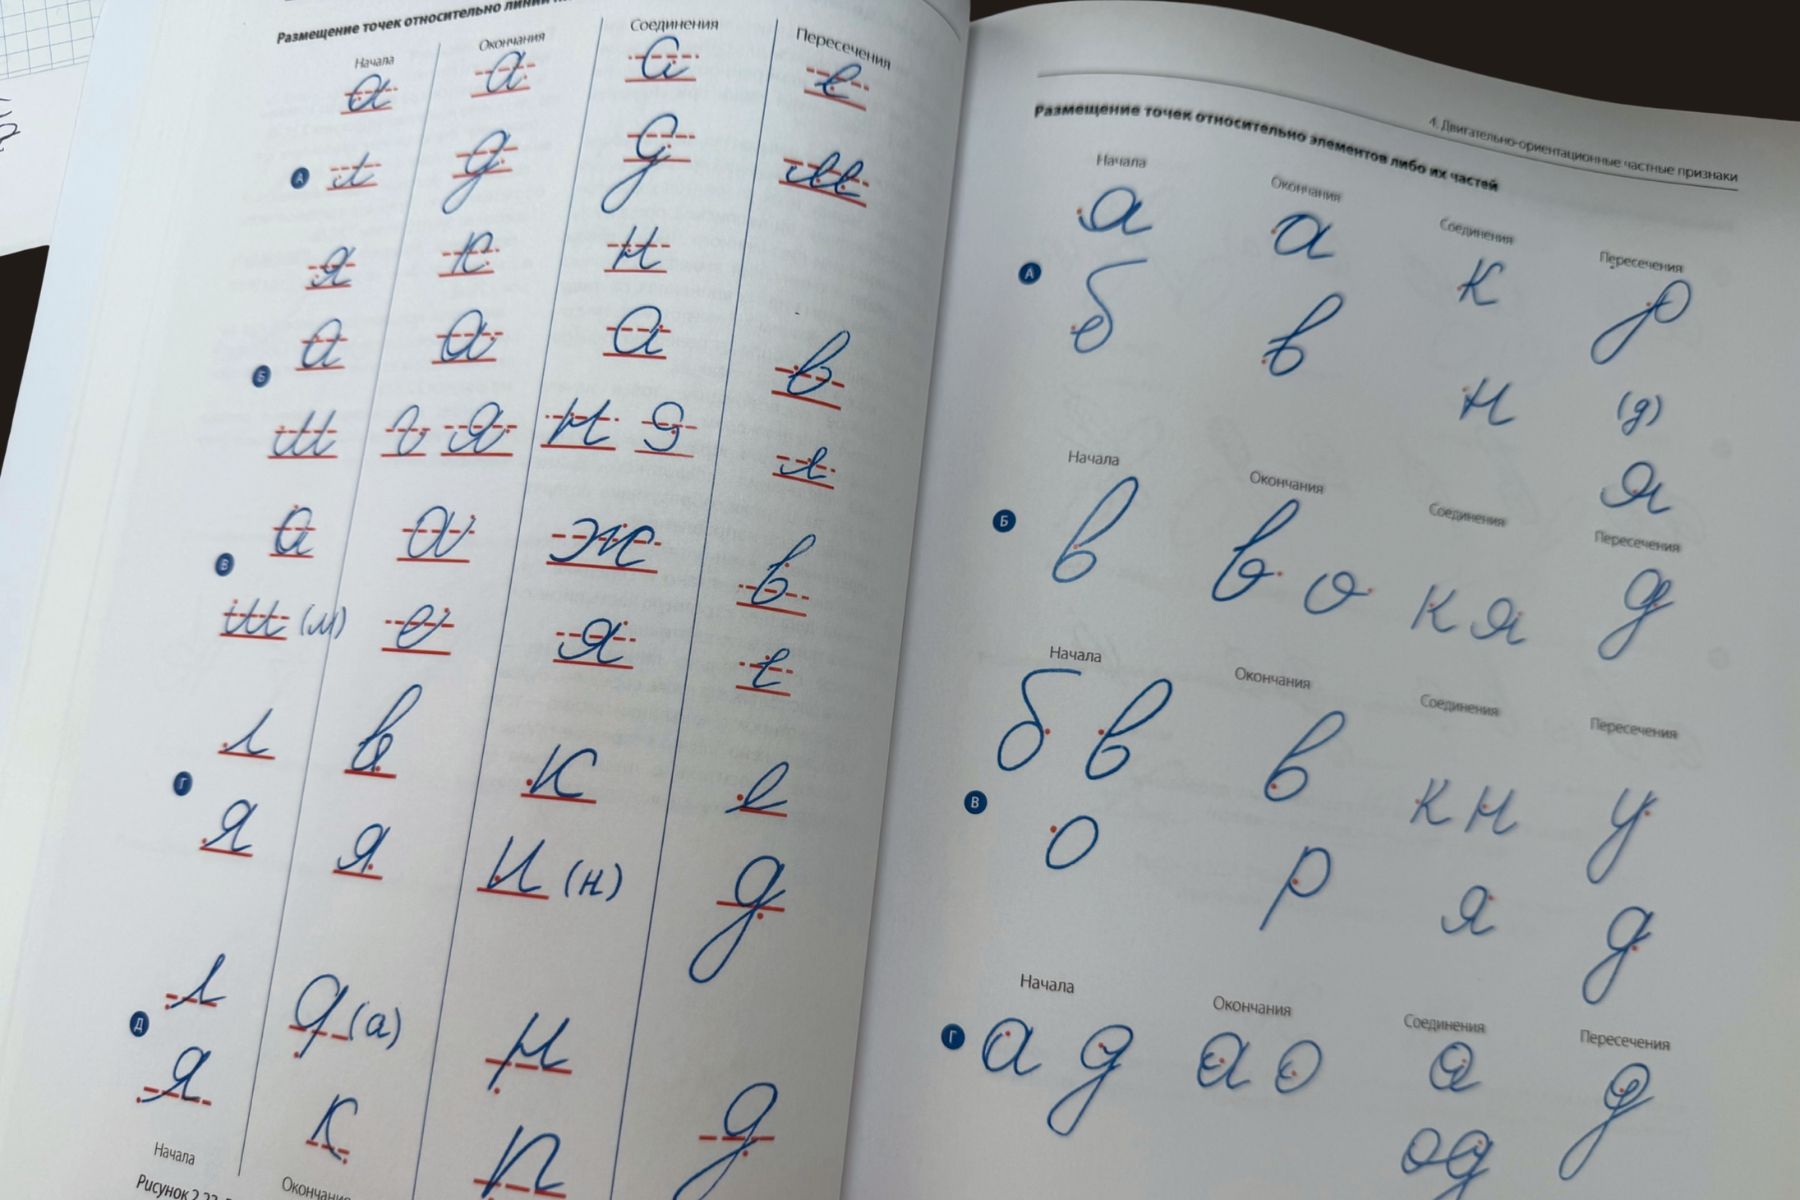 Размещение точек относительно линии
Начала Окончания Соединения Пересечения
а а а е
А л д д ш
я к н
а а а в
Б ш о я н я л
а а ж в
В ш (м) о я е
л в к л
Г я я и (н) д
л д (а) и
Д я к п д
Начала
Окончания
Рисунок 2.22.
4. Двигательно-ориентационные частные признаки
Размещение точек относительно элементов либо их частей
Начала Окончания Соединения Пересечения
а а к р
А б в н (д)
я
Начала Окончания Соединения Пересечения
Б в в о к я д
Начала Окончания Соединения Пересечения
б в в к н у
В о р я д
Начала Окончания Соединения Пересечения
Г а д а о а д
од